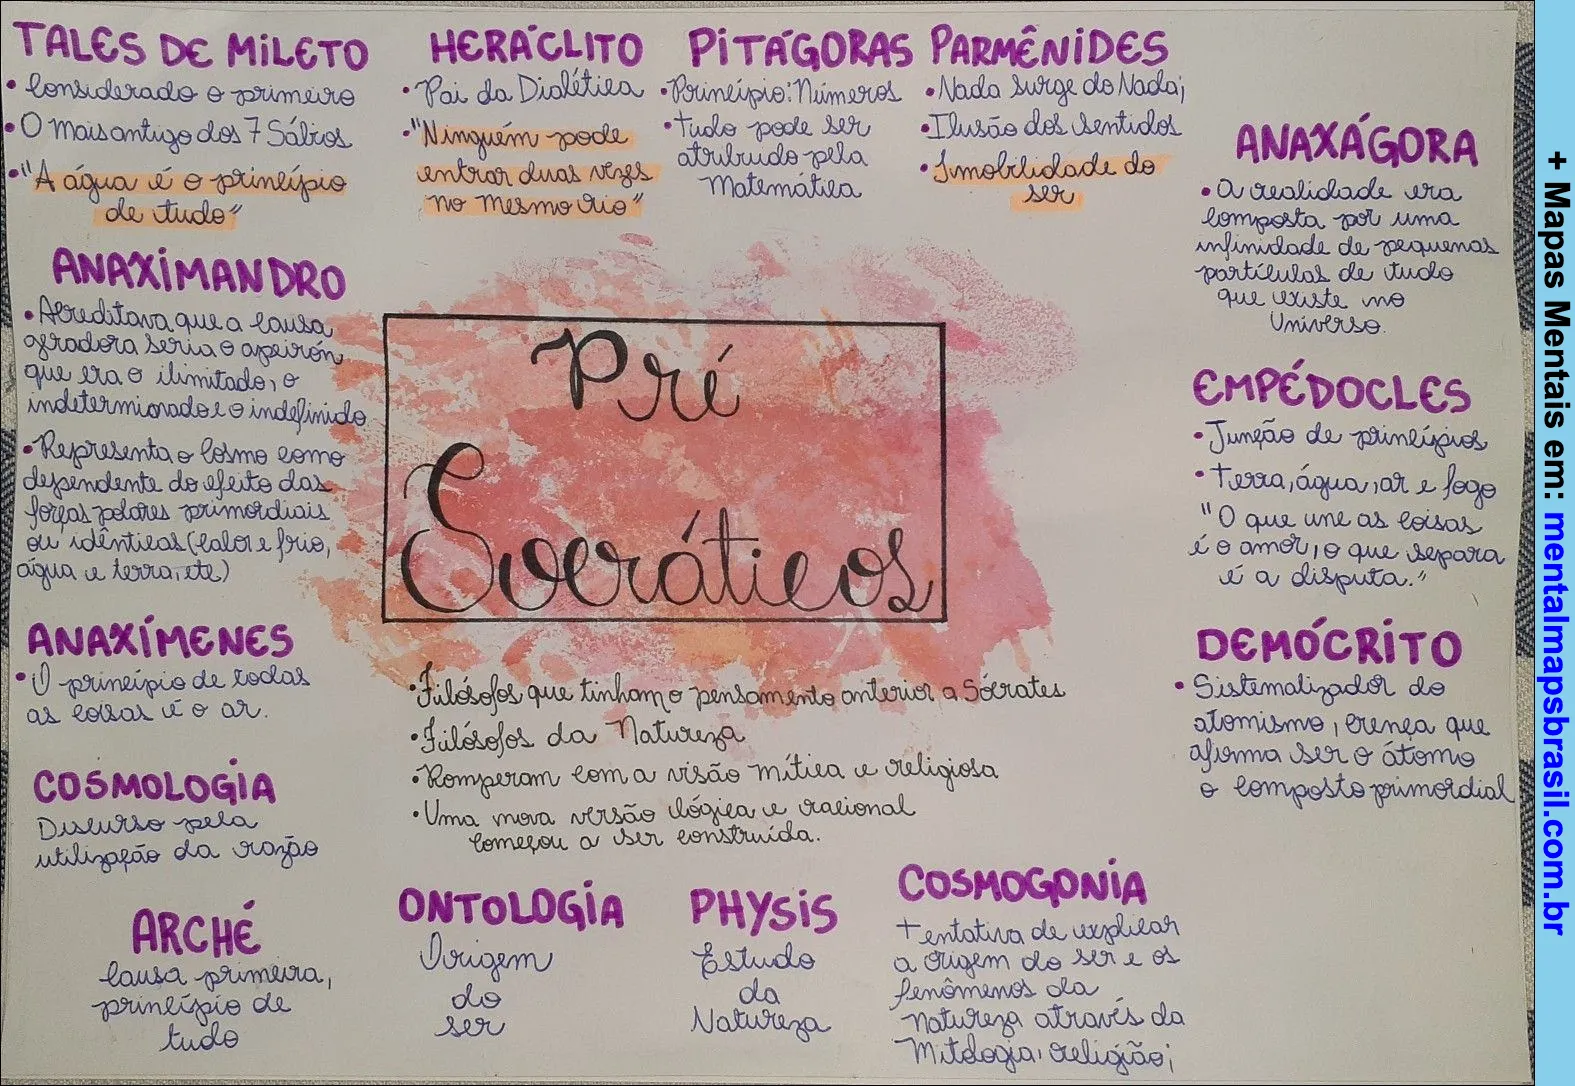 TALES DE MILETO
• Considerado o primeiro
• O mais antigo dos 7 Sábios
• "A água é o princípio
de tudo"
HERÁCLITO
• Pai da Dialética
• "Ninguém pode
entrar duas vezes
no mesmo rio"
PITÁGORAS
• Princípio: Números
• Tudo pode ser
atribuído pela
Matemática
PARMÊNIDES
• Nada surge do Nada;
• Ilusão dos sentidos
• Imobilidade do
ser
ANAXÁGORA
• A realidade era
composta por uma
infinidade de pequenas
partículas de tudo
que existe no
Universo.
ANAXIMANDRO
• Acreditava que a causa
geradora seria o apeirón,
que era o ilimitado, o
indeterminado e o indefinido
• Representa o cosmo como
dependente do efeito das
forças polares primordiais
ou idênticas (calor e frio,
água e terra, etc)
Pré
Socráticos
EMPÉDOCLES
• Junção de princípios
• Terra, água, ar e fogo
"O que une as coisas
é o amor, o que separa
é a disputa."
ANAXÍMENES
• O princípio de todas
as coisas é o ar.
• Filósofos que tinham o pensamento anterior a Sócrates
• Filósofos da Natureza
• Romperam com a visão mítica e religiosa
• Uma nova versão lógica e racional
começou a ser construída.
DEMÓCRITO
• Sistematizador do
atomismo, crença que
afirma ser o átomo
o composto primordial
COSMOLOGIA
Discurso pela
utilização da razão
ARCHÉ
Causa primeira,
princípio de
tudo
ONTOLOGIA
Origem
do
ser
PHYSIS
Estudo
da
Natureza
COSMOGONIA
Tentativa de explicar
a origem do ser e os
fenômenos da
Natureza através da
Mitologia, religião;
+ Mapas Mentais em: mentalmapsbrasil.com.br